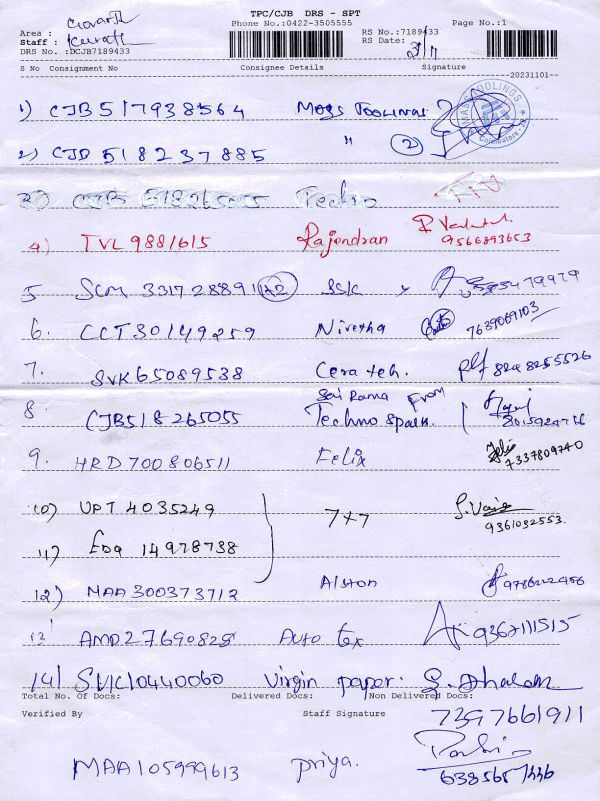 TPC/CJB DRS - SPT
Phone No.:0422-3505555
Page No.:1
Area :
Staff :
DRS No. :DCJB7189433
RS No.:7189433
RS Date: 2/11
S No Consignment No Consignee Details Signature
--20231101--
1) CJB517938564 Mags Toolings
MAGS TOOLINGS Coimbatore
2) CJB 518237885 " 2
3) CJB 518265055 Techno
4) TVL 9881615 Rajendran 9566893653
5 SCM 331728891 1x2 SSK
6. CCT30149259 Nivetha 7639069103
7. SVK65089538 Cera teh. 8248255526
8. CJB518265055 Sai Rama From Techno spark.
9. HRD700806511 Felix Felix 7337809740
10) UPT 4035249 7+7 9361032553.
11) EDQ 14978738
12) MAA300373712 Alston
13 AMD27690828 Auto tex 9367111515
14) SVK10440060 Virgin paper.
Total No. Of Docs: Delivered Docs: Non Delivered Docs:
7297661911
Verified By Staff Signature
MAA105999613 priya.